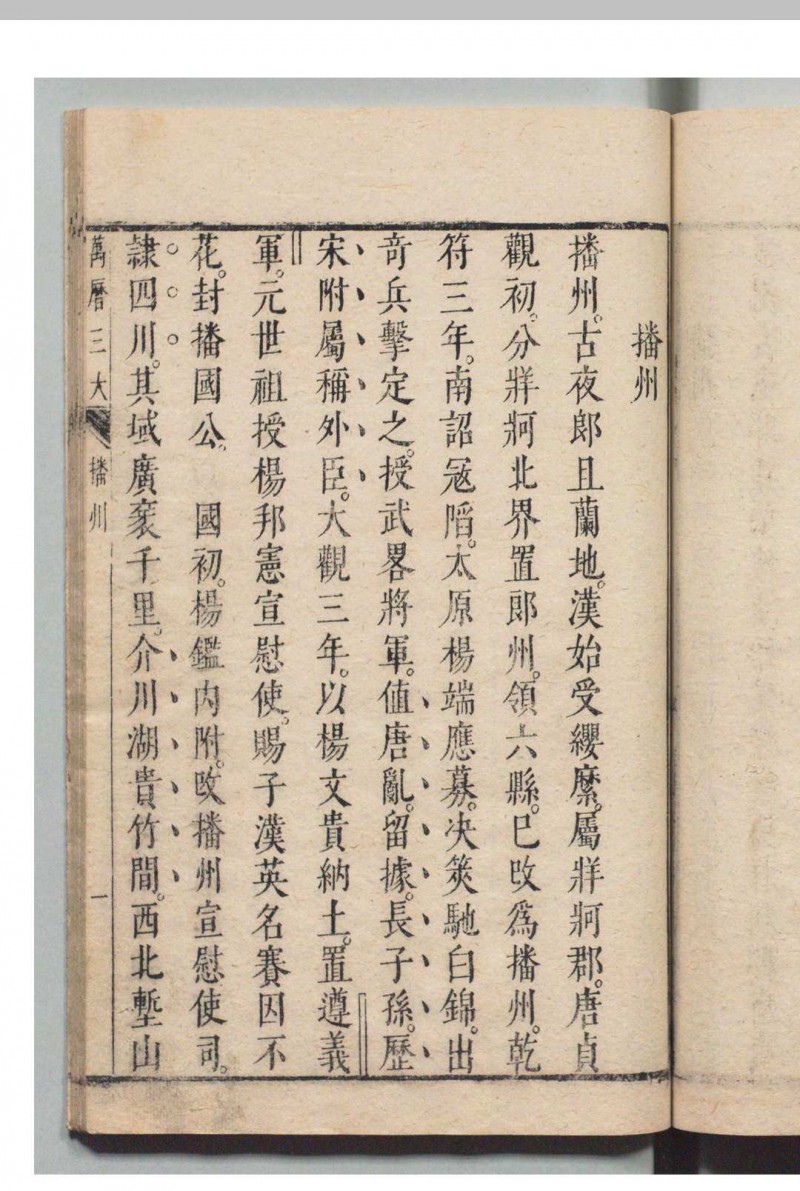 播州
播州。古夜郎且蘭地。漢始受纓縻。屬牂牁郡。唐貞
觀初。分牂牁北界置郎州。領六縣。已攺爲播州。乾
符三年。南詔冦䧟。太原楊端應募。决筴馳白錦。出
奇兵擊定之。授武畧將軍。値唐亂。留據。長子孫。歷
宋附屬稱外臣。大觀三年。以楊文貴納土。置遵義
軍。元世祖授楊邦憲宣慰使。賜子漢英名賽因不
花。封播國公。　國初。楊鑑内附。攺播州宣慰使司。
隷四川。其域廣袤千里。介川湖貴竹間。西北塹山
萬曆三大　播州　一